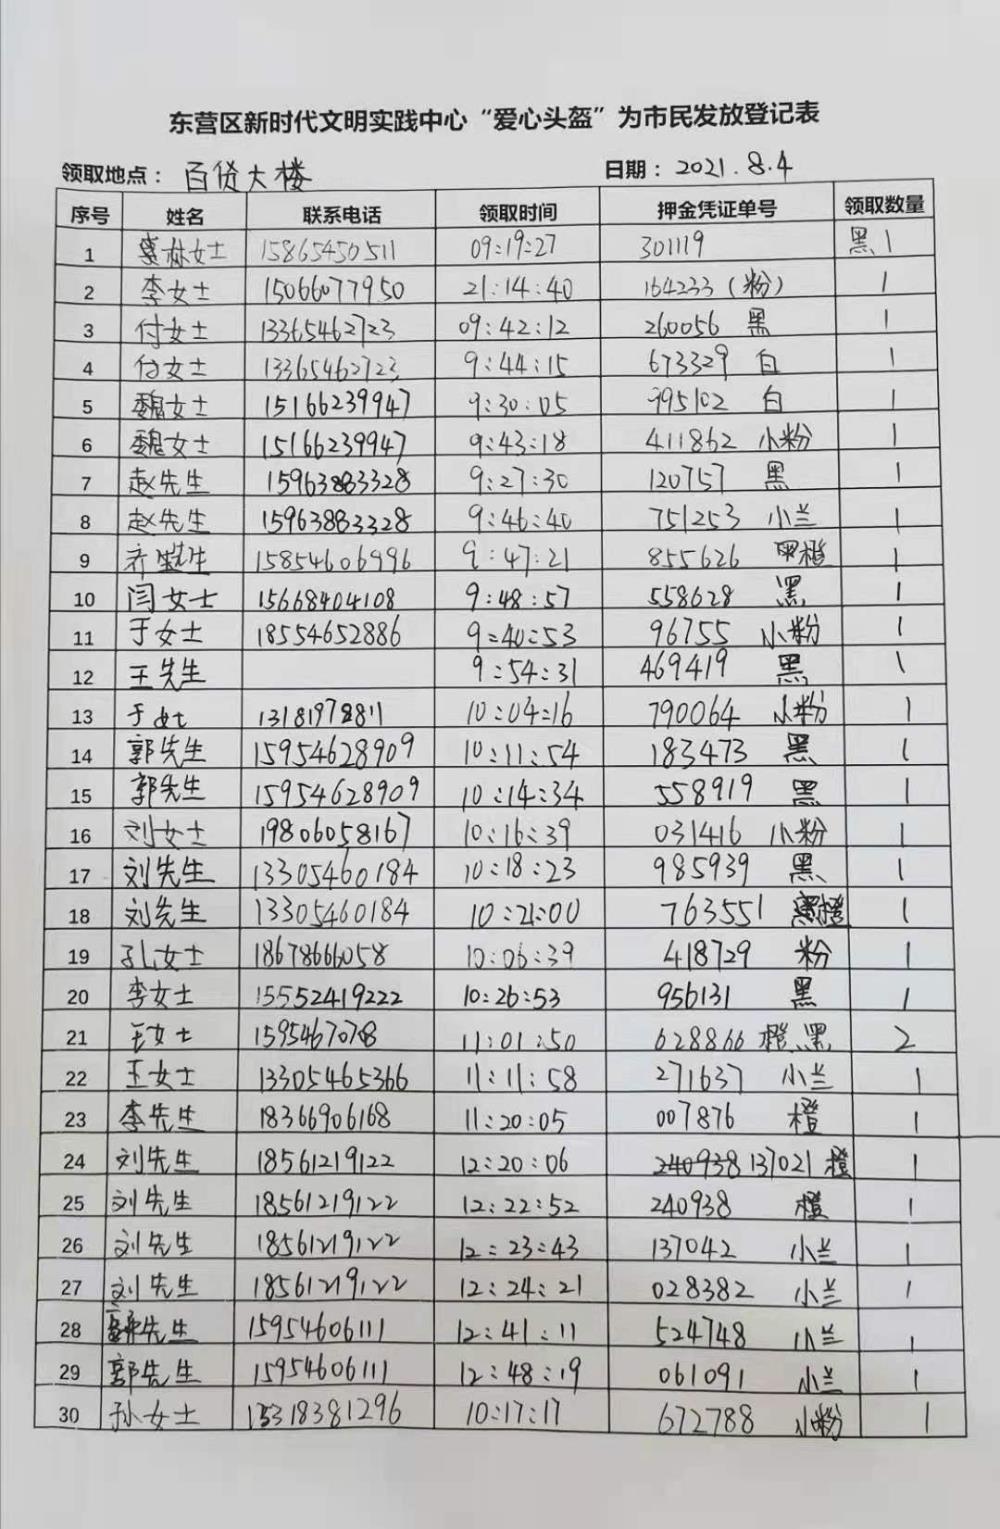 东营区新时代文明实践中心“爱心头盔”为市民发放登记表
领取地点：百货大楼 日期：2021.8.4
序号 姓名 联系电话 领取时间 押金凭证单号 领取数量
1 女士 15865450511 09:19:27 301119 黑1
2 李女士 15066077950 21:14:40 164233(粉) 1
3 付女士 13365462723 09:42:12 260056 黑 1
4 付女士 13365462723 9:44:15 673329 白 1
5 魏女士 15166239947 9:30:05 995102 白 1
6 魏女士 15166239947 9:43:18 411862 小粉 1
7 赵先生 15963883328 9:27:30 120757 黑 1
8 赵先生 15963883328 9:46:40 751253 小兰 1
9 齐先生 15854606996 9:47:21 855626 橙 1
10 闫女士 15668404108 9:48:57 558628 黑 1
11 于女士 18554652886 9:40:53 96755 小粉 1
12 王先生 9:54:31 469419 黑 1
13 于女士 13181972811 10:04:16 790064 小粉 1
14 郭先生 15954628909 10:11:54 183473 黑 1
15 郭先生 15954628909 10:14:34 558919 黑 1
16 刘女士 19806058167 10:16:39 031416 小粉 1
17 刘先生 13305460184 10:18:23 985939 黑 1
18 刘先生 13305460184 10:21:00 763551 橙 1
19 孔女士 18678666058 10:06:39 418729 粉 1
20 李女士 15552419222 10:26:53 956131 黑 1
21 王女士 11:01:50 628866 橙、黑 2
22 王女士 13305465366 11:11:58 271637 小兰 1
23 李先生 18366906168 11:20:05 007876 橙 1
24 刘先生 18561219122 12:20:06 240938 137021 橙 1
25 刘先生 18561219122 12:22:52 240938 橙 1
26 刘先生 18561219122 12:23:43 137042 小兰 1
27 刘先生 18561219122 12:24:21 028382 小兰 1
28 先生 15954606111 12:41:11 524748 小兰 1
29 郭先生 15954606111 12:48:19 061091 小兰 1
30 孙女士 10:17:17 672788 小粉 1